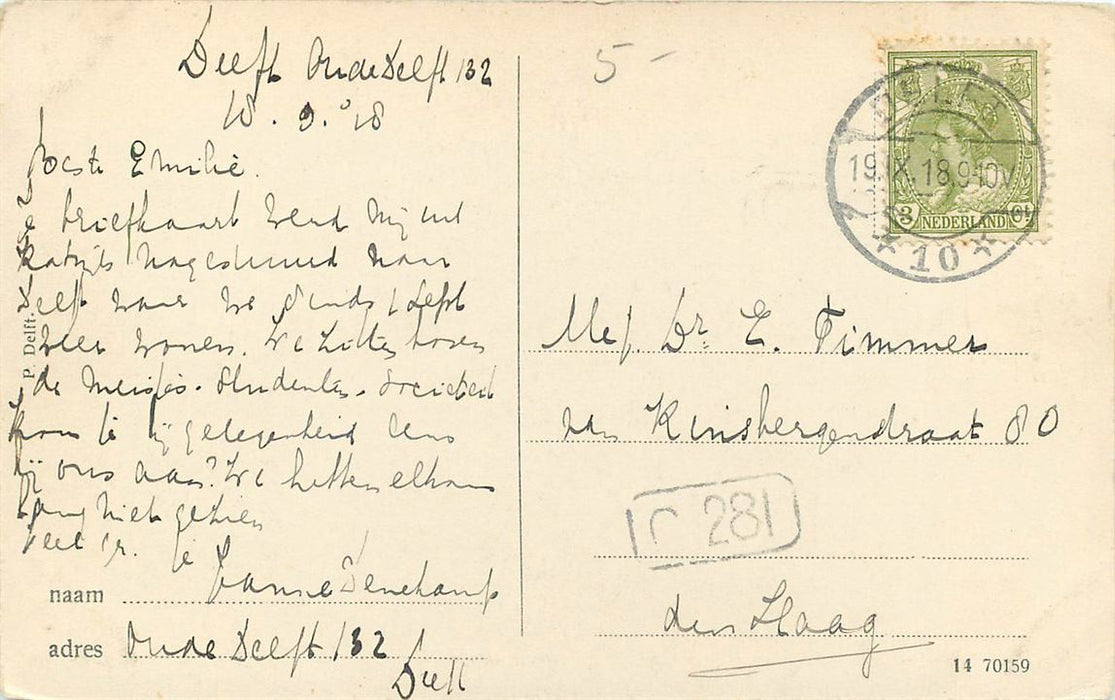 Delft Oude Delft 132
18.9.'18
Beste Emilie.
Je briefkaart werd mij uit
Katwijk nagestuurd naar
Delft waar we sinds 1 Sept
weer wonen. We zitten boven
de meisjes-studenten-sociëteit
Kom je bij gelegenheid eens
bij ons aan? We hebben elkaar
lang niet gezien
Veel gr. je
naam
adres Oude Delft 132
Delft
P. Delft.
5-
DELFT
19.IX.18.9-10V
10
3 NEDERLAND Ct
Mej. Dr. E. Timmer
van Kinsbergenstraat 80
C 281
den Haag
14 70159